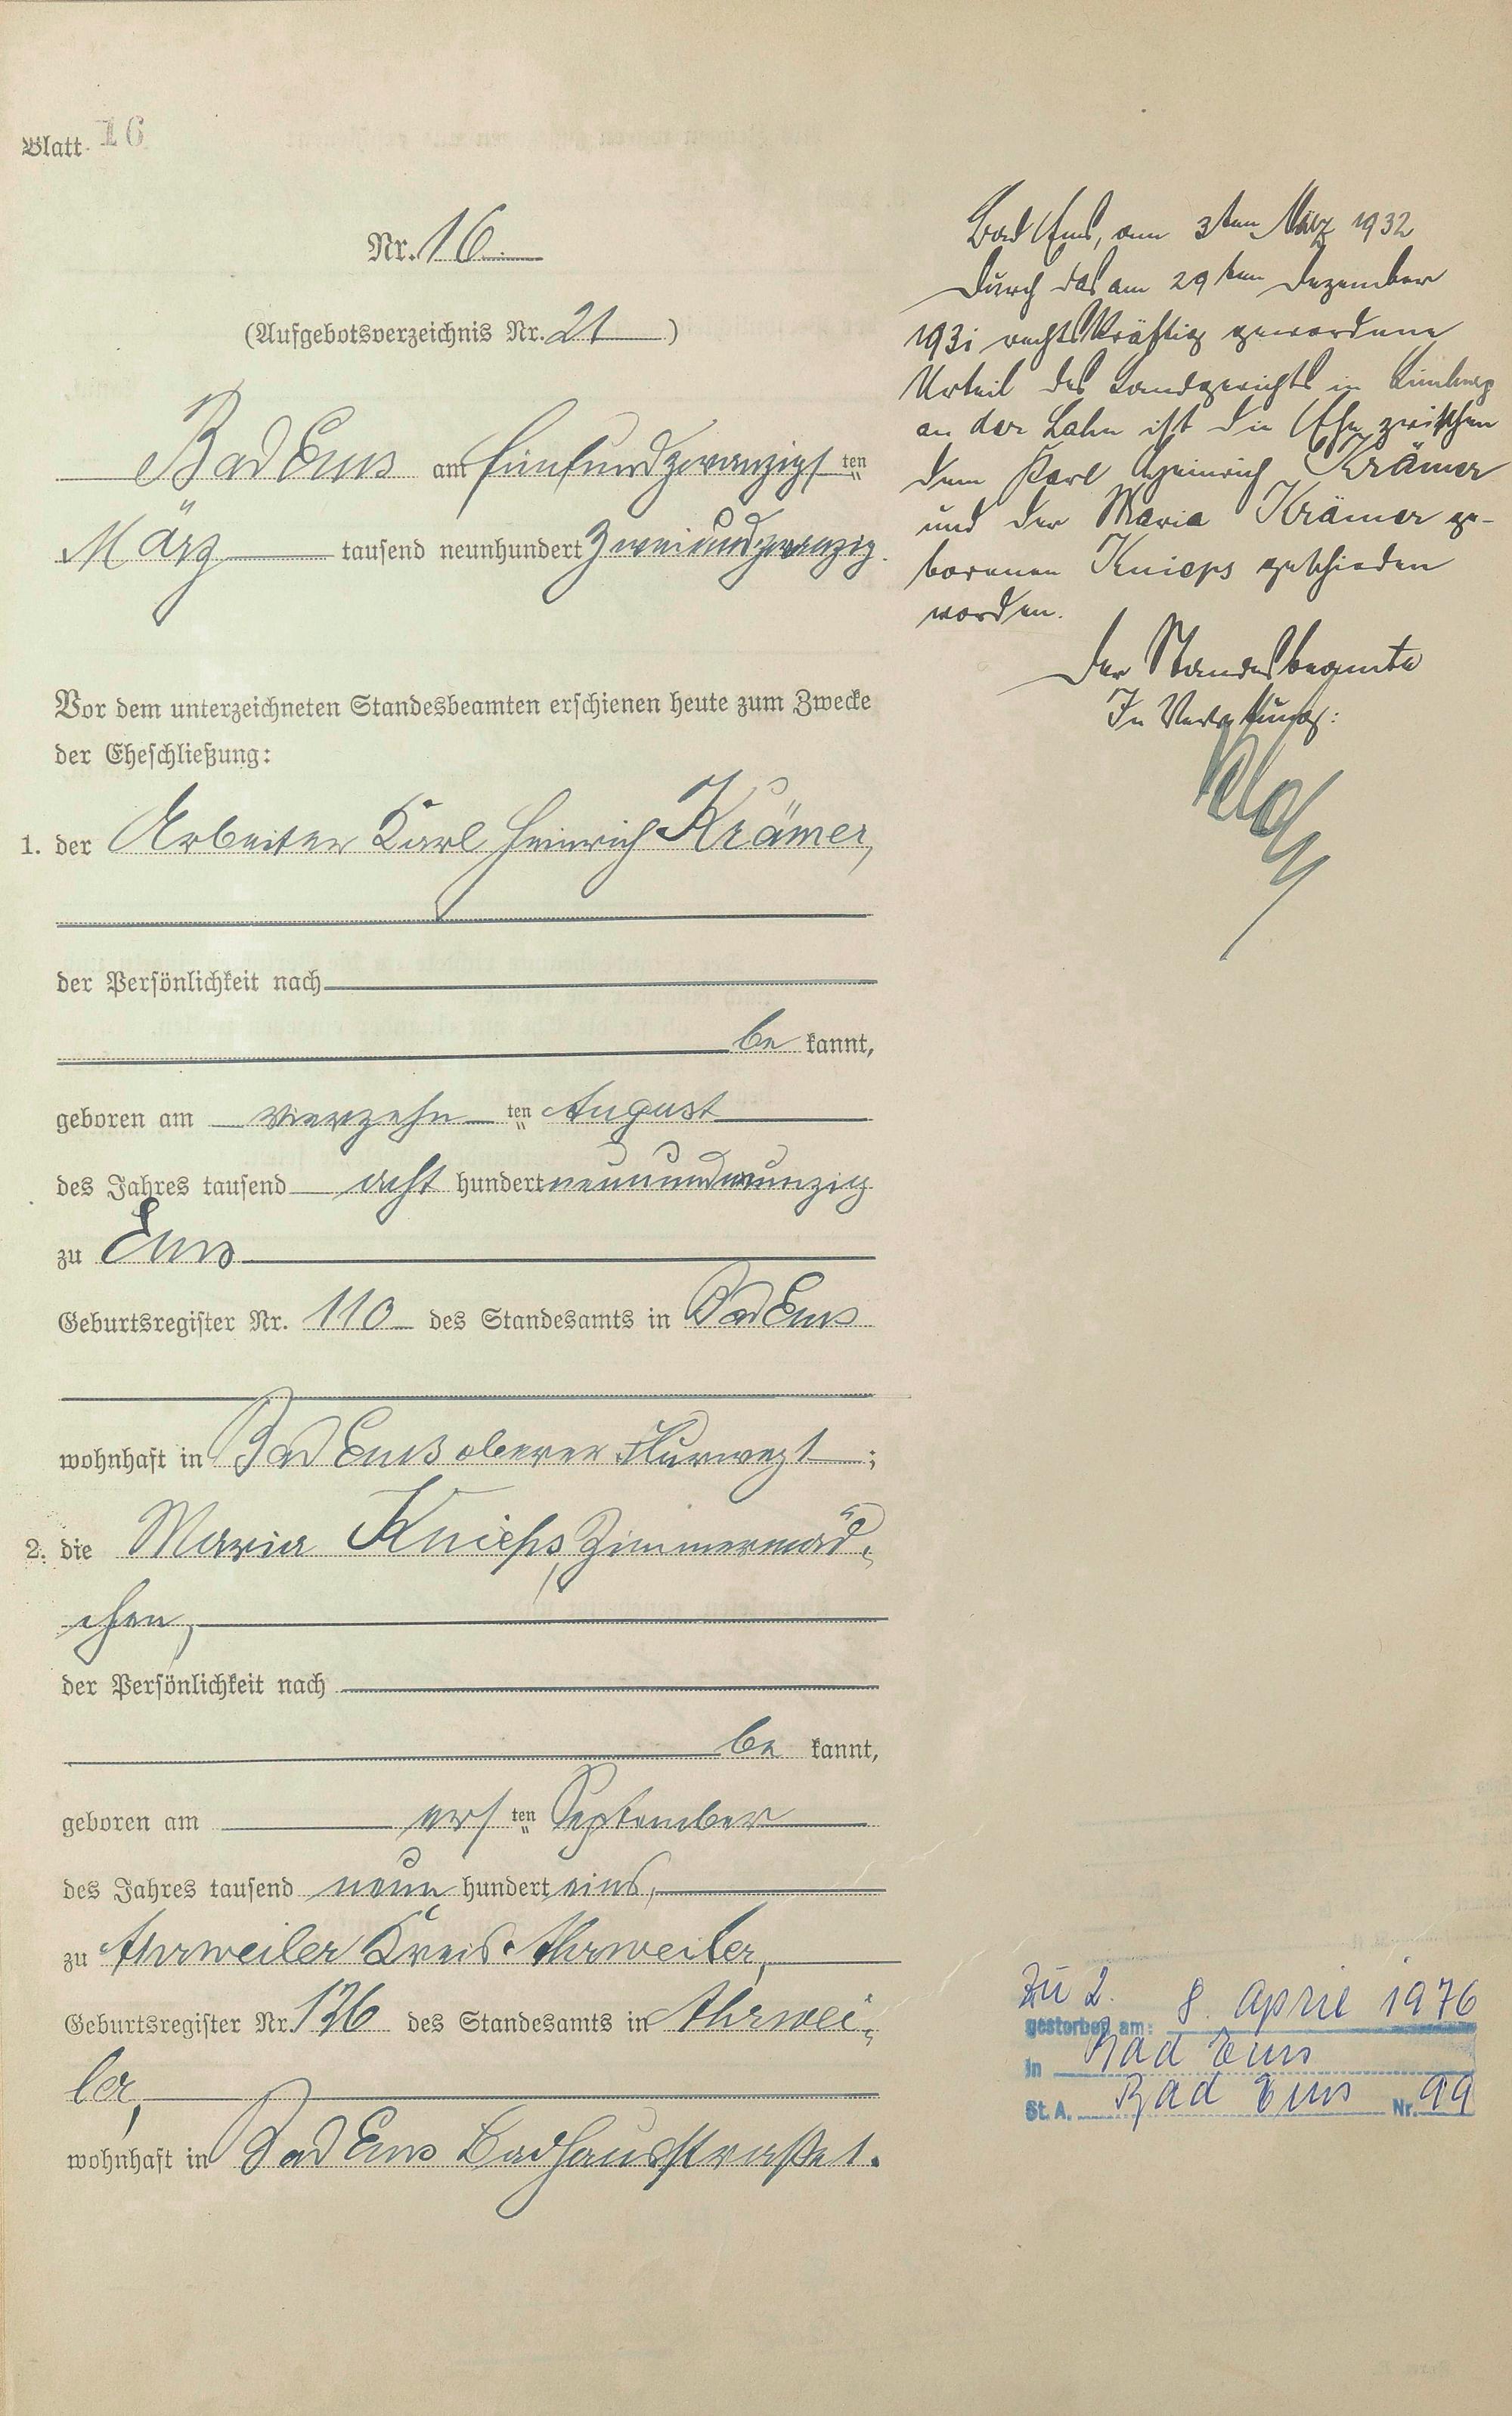 Blatt 16
Nr. 16.
(Aufgebotsverzeichnis Nr. 21)
Bad Ems am fünfundzwanzigsten
März tausend neunhundert zweiundzwanzig.
Vor dem unterzeichneten Standesbeamten erschienen heute zum Zwecke
der Eheschließung:
1. der Arbeiter Karl Heinrich Krämer,
der Persönlichkeit nach
be kannt,
geboren am vierzehn ten August
des Jahres tausend acht hundert neunundneunzig
zu Ems
Geburtsregister Nr. 110 des Standesamts in Bad Ems
wohnhaft in Bad Ems oberer Flurweg 1;
2. die Maria Knieps, Zimmermäd-
chen,
der Persönlichkeit nach
be kannt,
geboren am ers ten September
des Jahres tausend neun hundert eins,
zu Ahrweiler Kreis Ahrweiler,
Geburtsregister Nr. 136 des Standesamts in Ahrwei-
ler,
wohnhaft in Bad Ems Badhausstraße 1.
Bad Ems, am 3ten März 1932
Durch das am 29ten Dezember
1931 rechtskräftig gewordene
Urteil des Landgerichts in Limburg
an der Lahn ist die Ehe zwischen
dem Karl Heinrich Krämer
und der Maria Krämer ge-
borenen Knieps geschieden
worden.
Der Standesbeamte
In Vertretung:
Zu 2.
gestorben am: 8. April 1976
in Bad Ems
St. A. Bad Ems Nr. 99